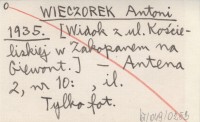 WIECZOREK Antoni
1935. [Widok z ul. Koście-
liskiej w Zakopanem na
Giewont.] - Antena
2, nr 10: , il.
Tylko fot.